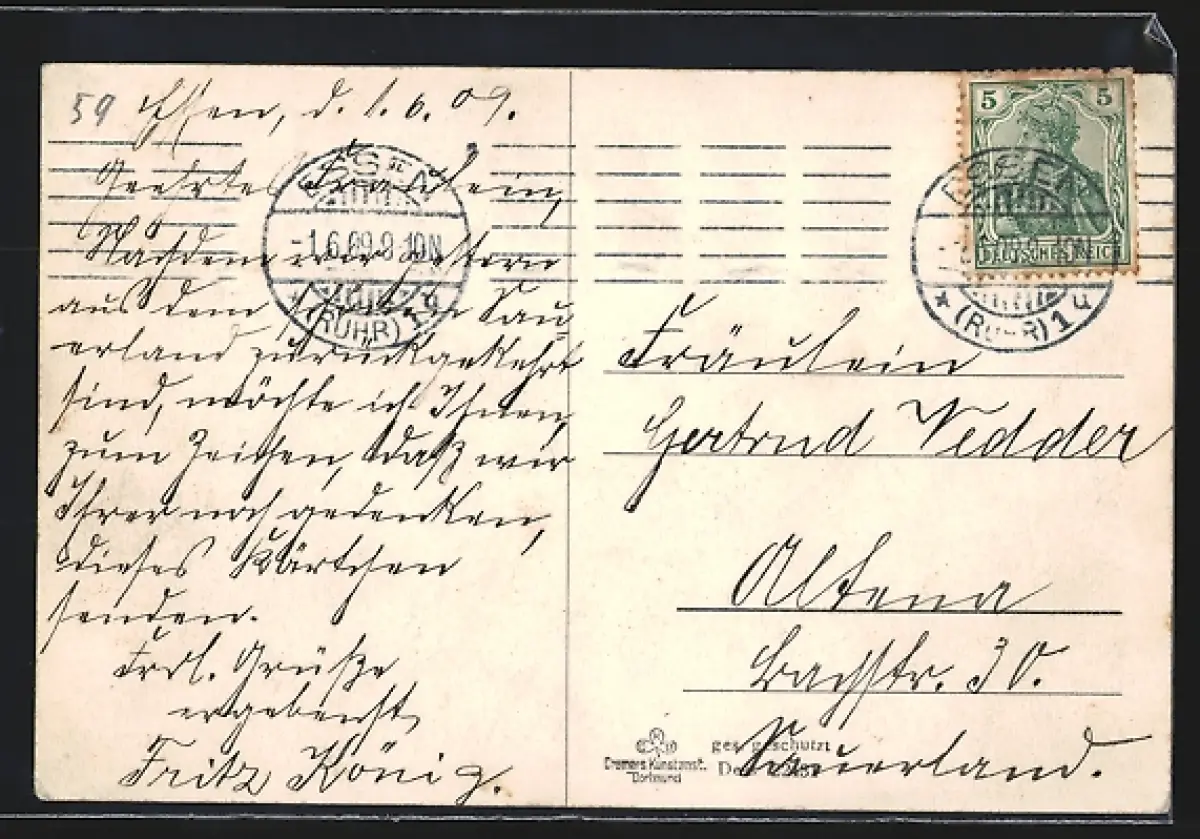 59 Essen, d. 1.6.09.
Geehrtes Fräulein,
Nachdem wir gestern
aus dem schönen Sau
erland zurückgekehrt
sind, möchte ich Ihnen,
zum Zeichen, daß wir
Ihrer noch gedenken,
dieses Kärtchen
senden.
Frdl. Grüße
ergebenst,
Fritz König.
ESSEN
-1.6.09.9-10N
* (RUHR) 1 u
5 5
DEUTSCHES REICH
ESSEN
* (RUHR) 1 u
Fräulein
Gertrud Vedder
Altena
Bachstr. 30.
Sauerland.
ges. geschützt
Cramers Kunstanst.
Dortmund